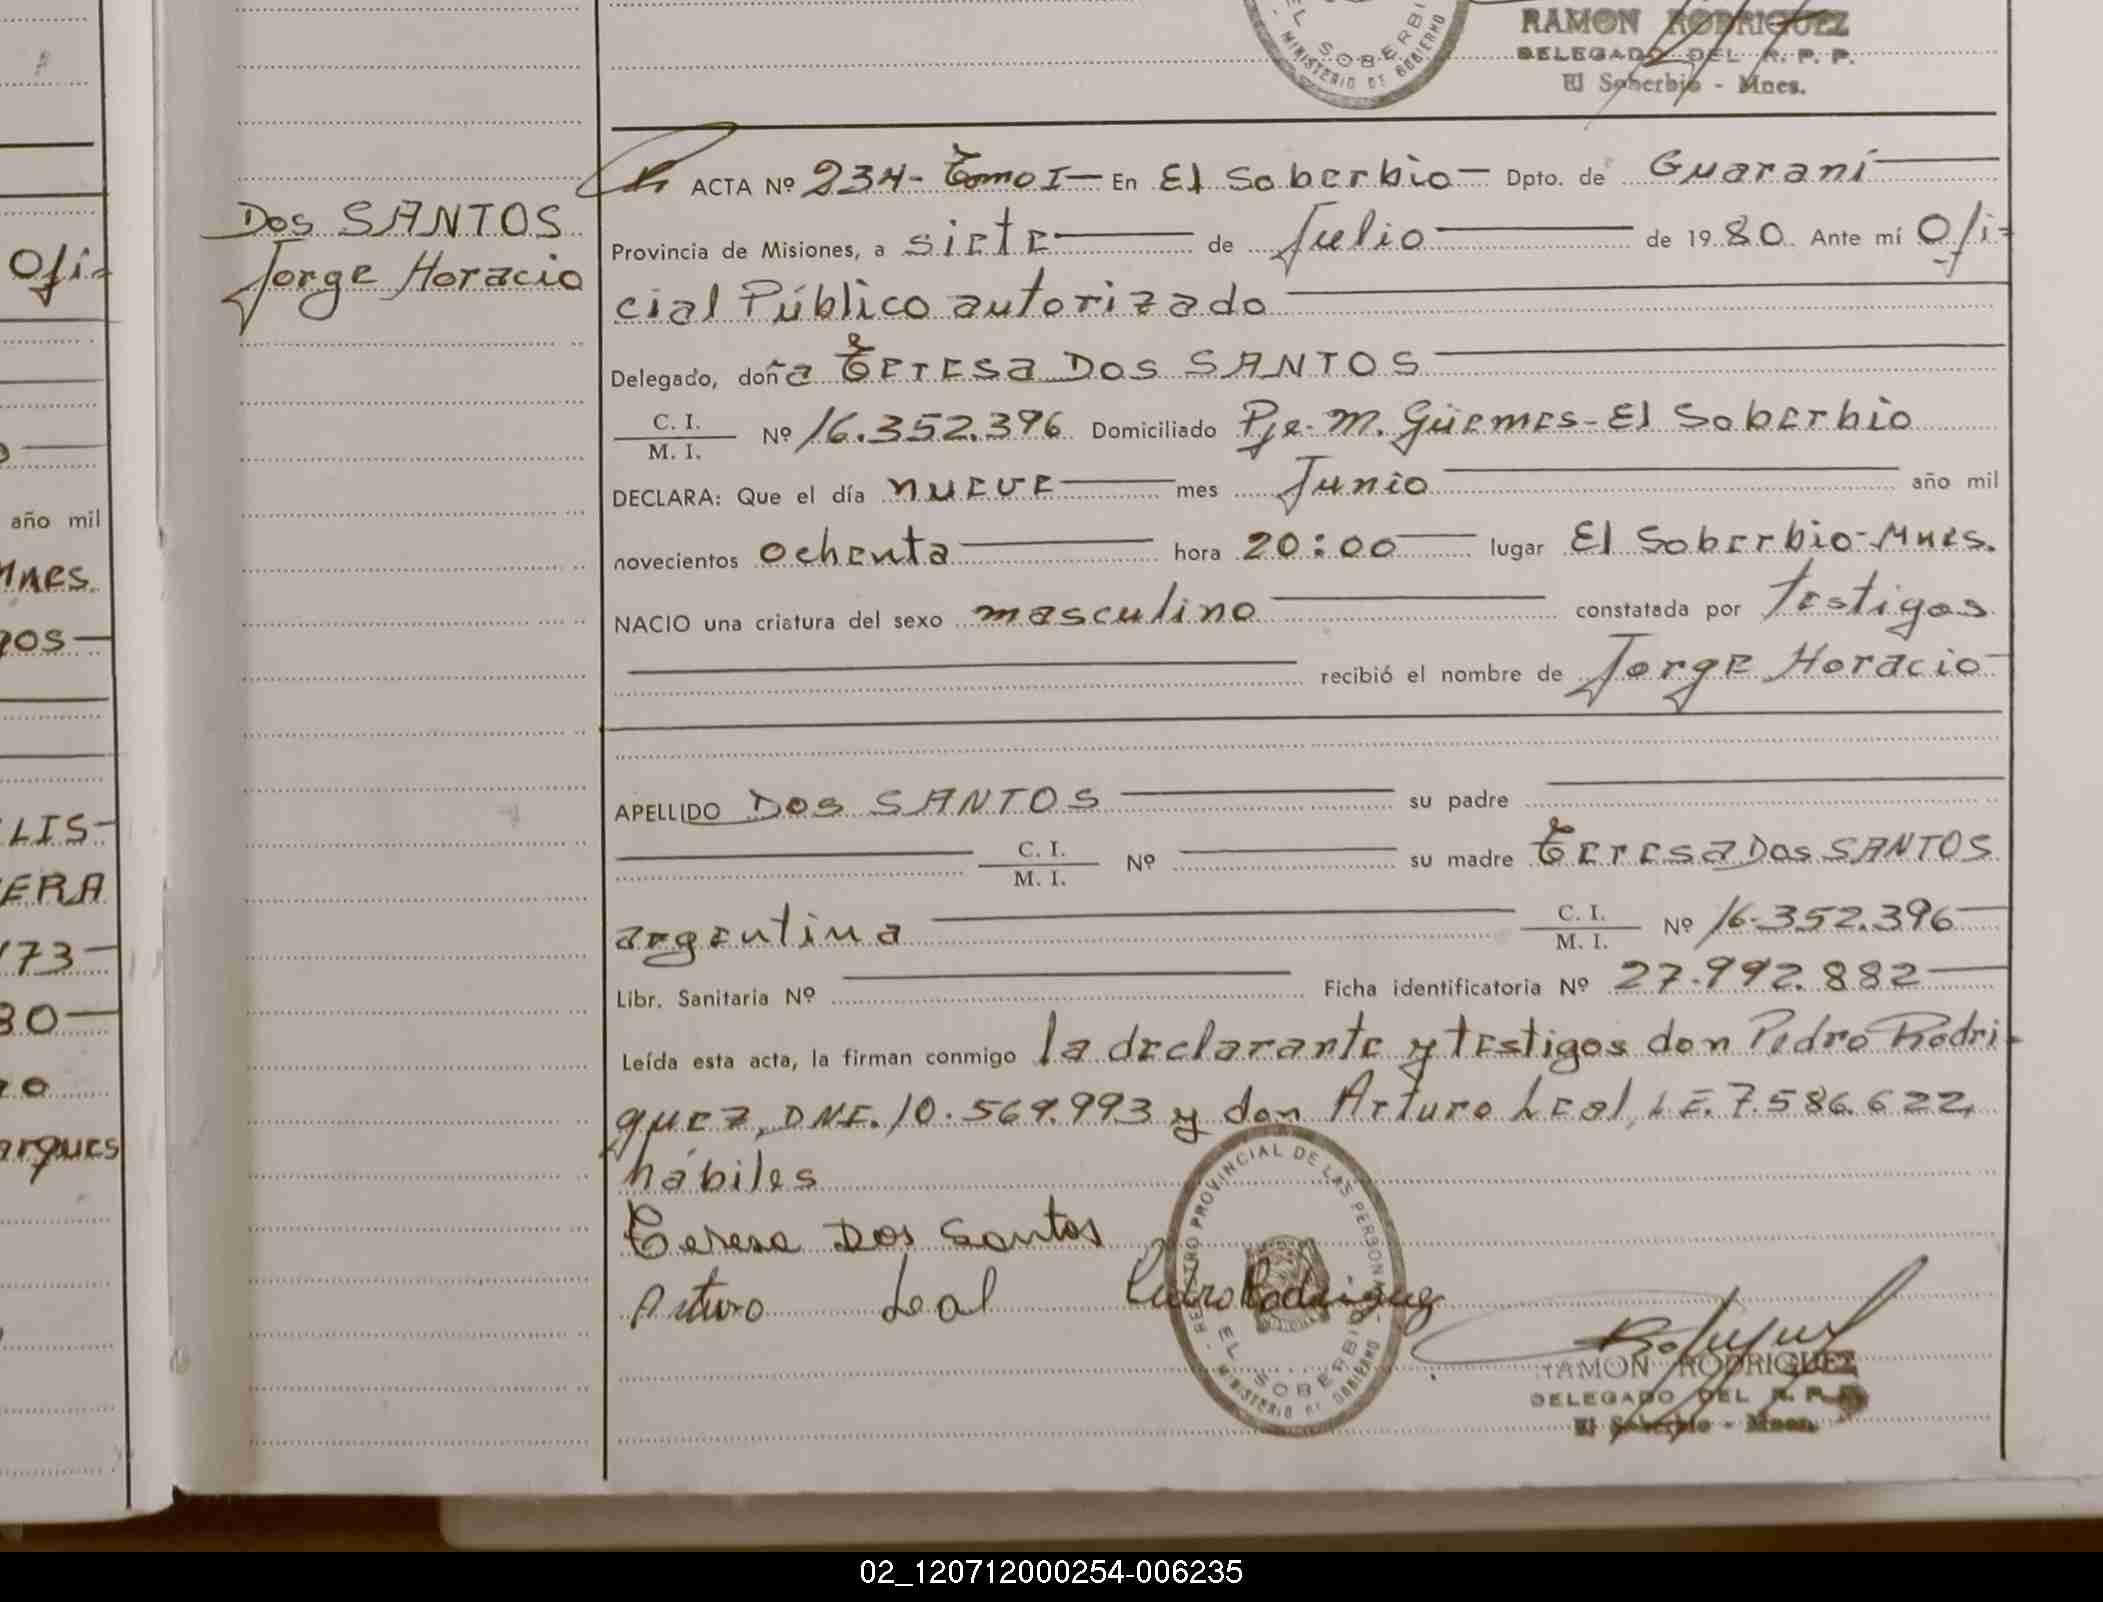 EL SOBERBI
MINISTERIO DE GOBIERNO
RAMON RODRIGUEZ
DELEGADO DEL R. P. P.
El Soberbio - Mnes.
Ofi-
año mil
Mnes.
gos
LIS-
ERA
173
80
arques
Dos SANTOS
Jorge Horacio
ACTA Nº 234- Tomo I En El Soberbio Dpto. de Guaraní
Provincia de Misiones, a siete de Julio de 1980. Ante mí Ofi-
cial Público autorizado
Delegado, doña Teresa Dos SANTOS
C. I.
M. I. Nº 16.352.396 Domiciliado Pje. M. Güemes-El Soberbio
DECLARA: Que el día nueve mes Junio año mil
novecientos ochenta hora 20:00 lugar El Soberbio-Mnes.
NACIO una criatura del sexo masculino constatada por testigos
recibió el nombre de Jorge Horacio
APELLIDO Dos SANTOS su padre
C. I.
M. I. Nº su madre Teresa Dos SANTOS
argentina C. I.
M. I. Nº 16.352.396
Libr. Sanitaria Nº Ficha identificatoria Nº 27.992.882
Leída esta acta, la firman conmigo la declarante y testigos don Pedro Rodri-
guez, DNI. 10.569.993 y don Arturo Leal, L.E. 7.586.622,
hábiles
Teresa Dos Santos
Arturo Leal Pedro Rodriguez
REGISTRO PROVINCIAL DE LAS PERSONAS
EL SOBERBIO
MINISTERIO DE GOBIERNO
RAMON RODRIGUEZ
DELEGADO DEL R. P. P.
El Soberbio - Mnes.
02_120712000254-006235